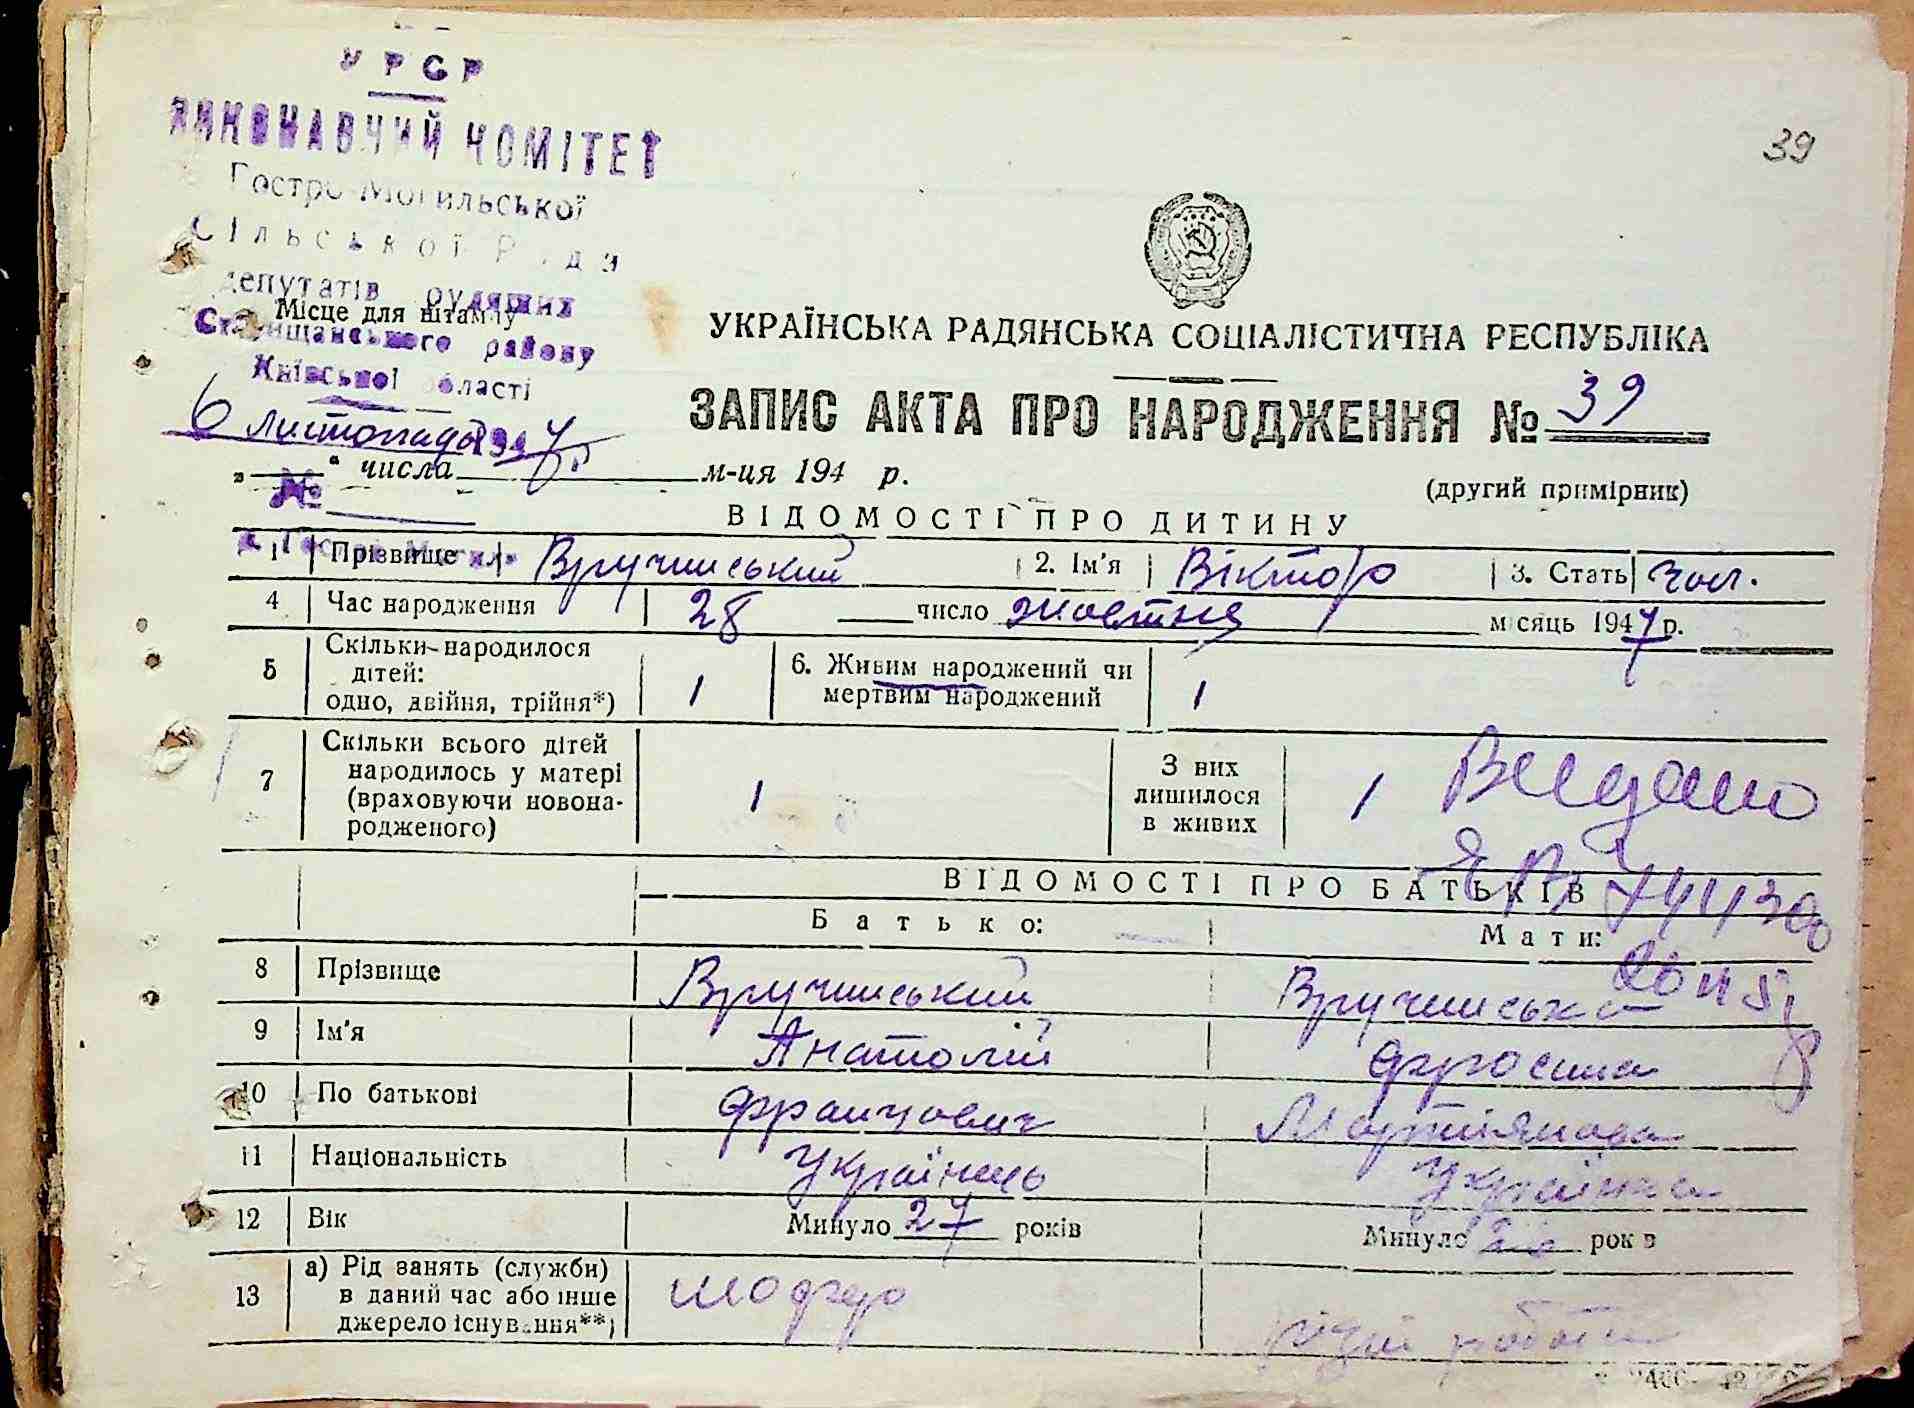 УРСР
ВИКОНАВЧИЙ КОМІТЕТ
Гостро-Могильської
Сільської Ради
депутатів трудящих
Місце для штампу
Ставищанського району
Київської області
6 листопада 1947
№
39
УКРАЇНСЬКА РАДЯНСЬКА СОЦІАЛІСТИЧНА РЕСПУБЛІКА
ЗАПИС АКТА ПРО НАРОДЖЕННЯ № 39
„ “ числа м-ця 194 р.
(другий примірник)
ВІДОМОСТІ ПРО ДИТИНУ
1 Прізвище Вручинський 2. Ім'я Віктор 3. Стать чол.
4 Час народження 28 число жовтня місяць 1947 р.
5 Скільки народилося дітей: одно, двійня, трійня*) 1 6. Живим народжений чи мертвим народжений 1
7 Скільки всього дітей народилось у матері (враховуючи новонародженого) 1 З них лишилося в живих 1
Видано
ВІДОМОСТІ ПРО БАТЬКІВ
Батько: Мати:
8 Прізвище Вручинський Вручинська
9 Ім'я Анатолій Фросина
10 По батькові Францович Мартіянова
11 Національність Українець Українка
12 Вік Минуло 27 років Минуло років
13 а) Рід занять (служби) в даний час або інше джерело існування**) шофер різні роботи